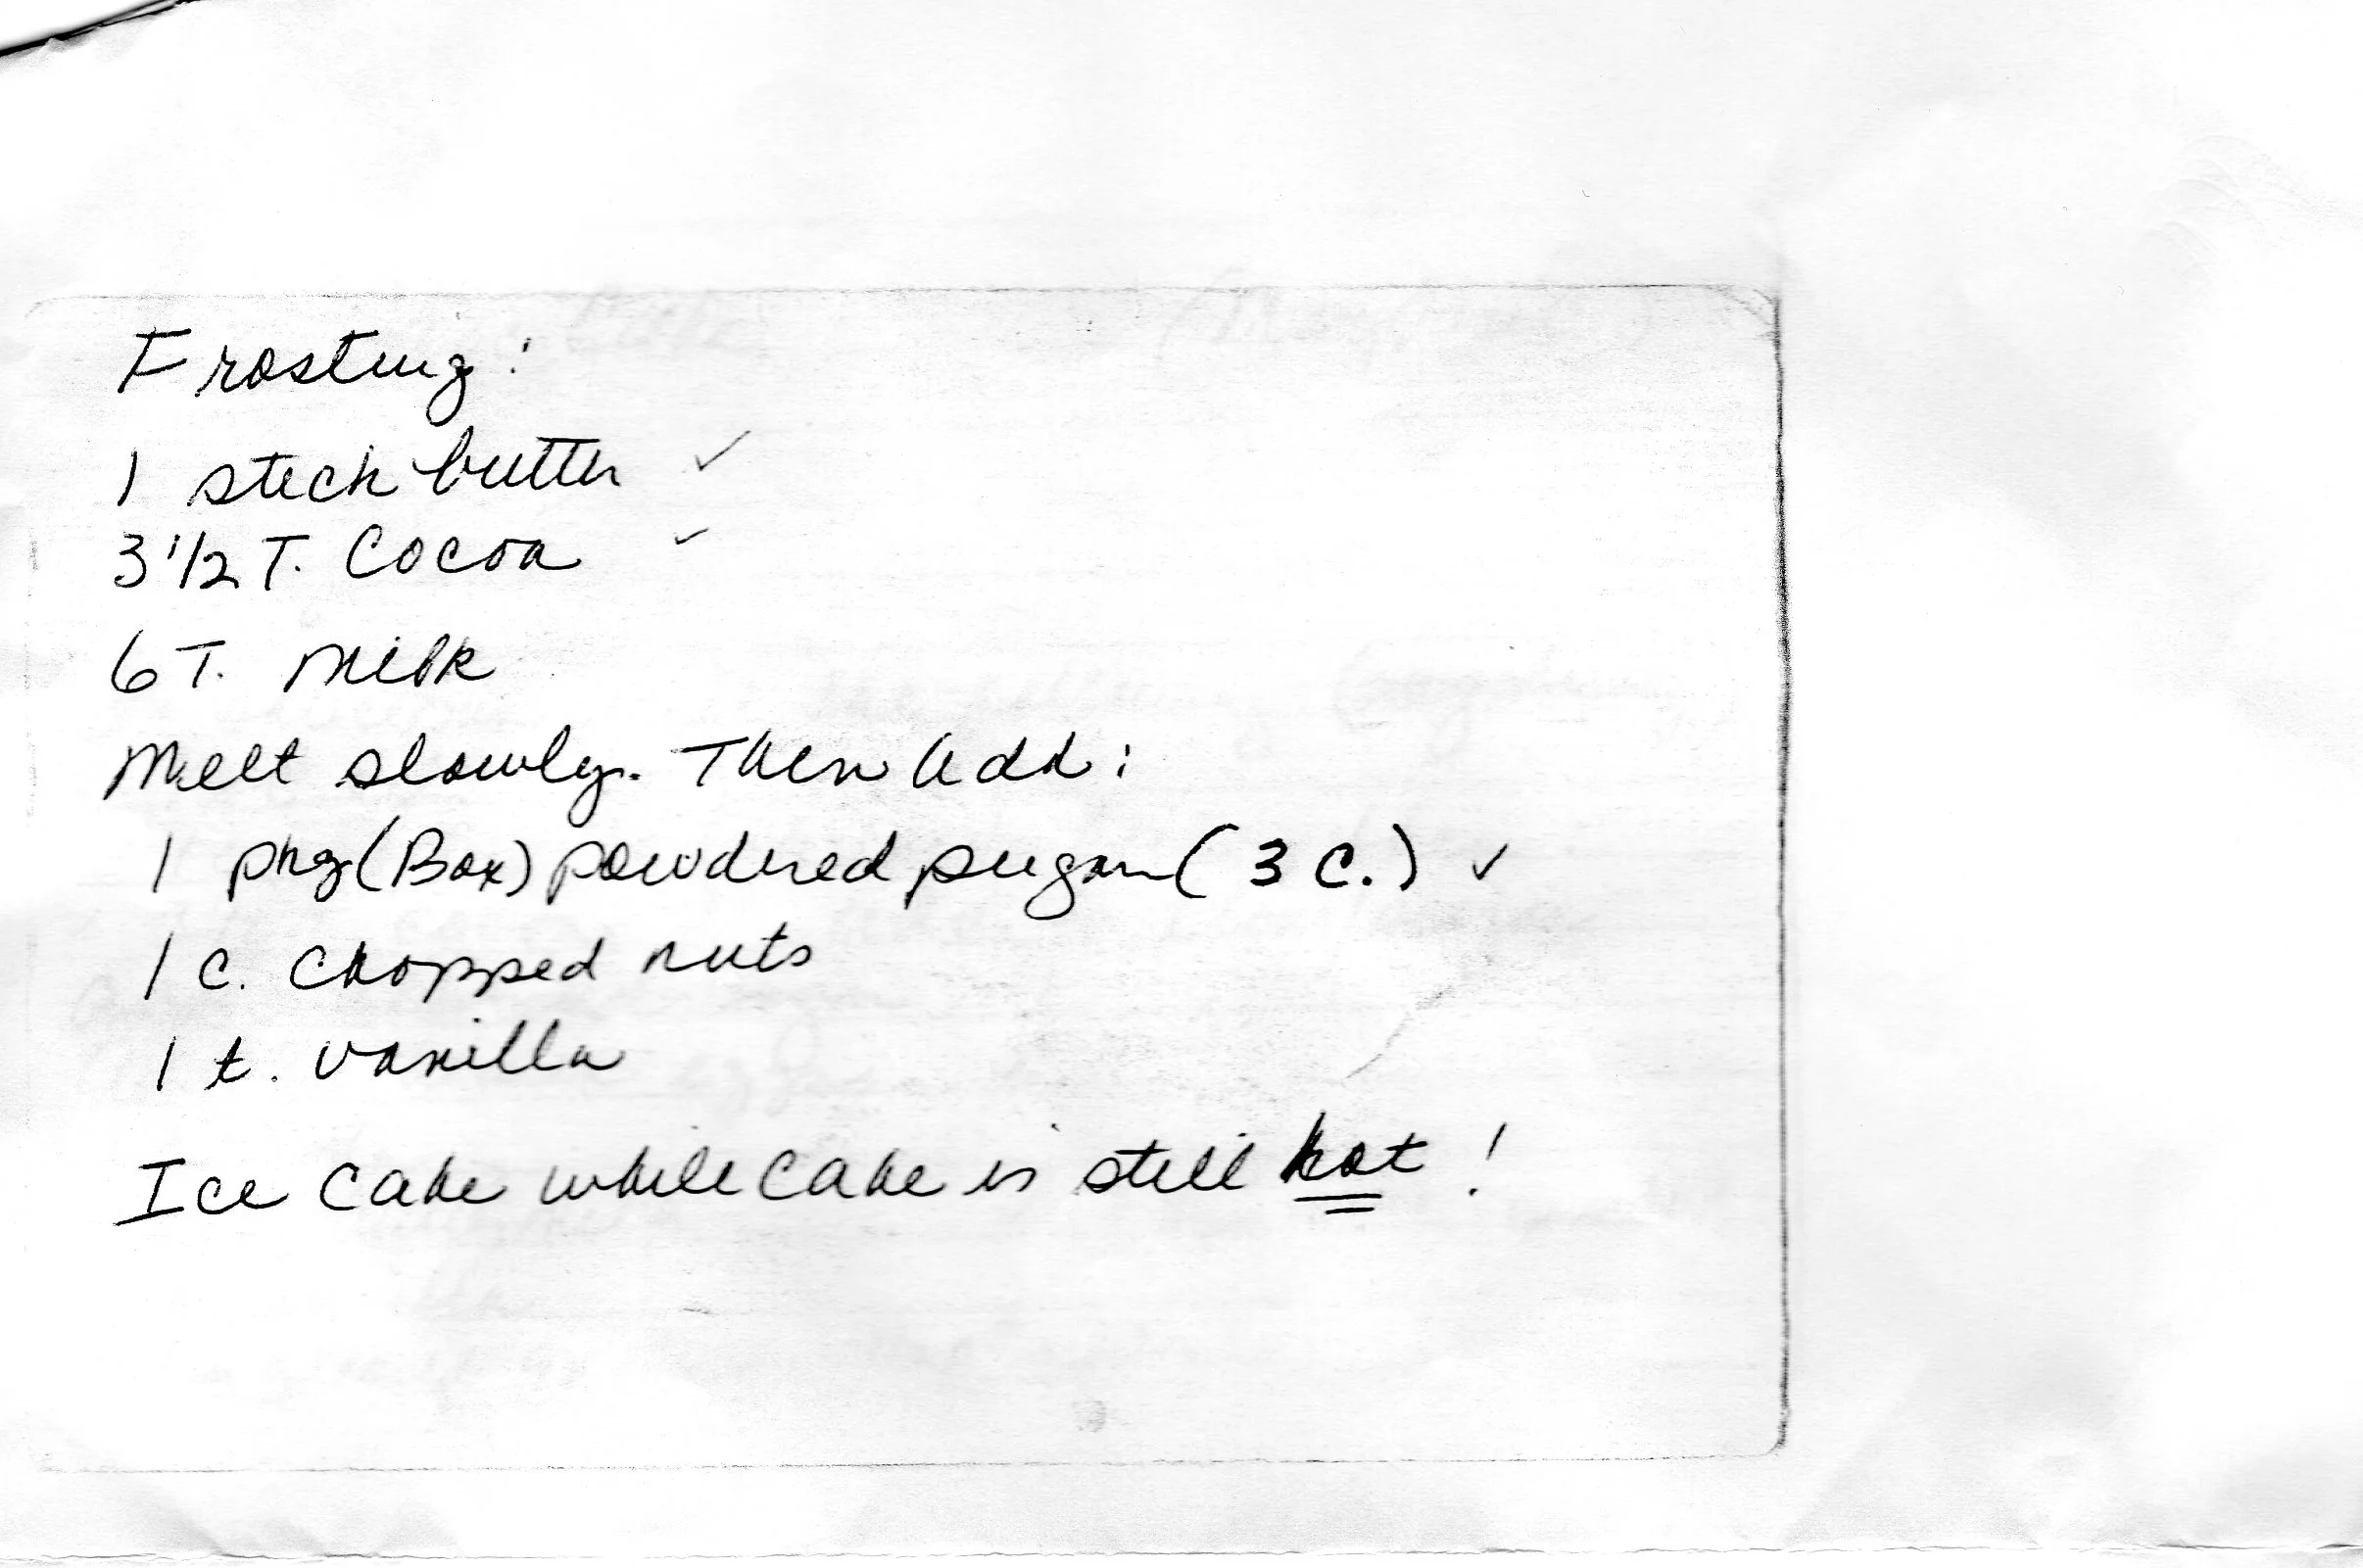 Frosting:
1 stick butter ✓
3 1/2 T. Cocoa ✓
6 T. Milk
Melt slowly. Then Add:
1 pkg (Box) powdered sugar (3 C.) ✓
1 C. Chopped nuts
1 t. vanilla
Ice Cake while Cake is still hot!